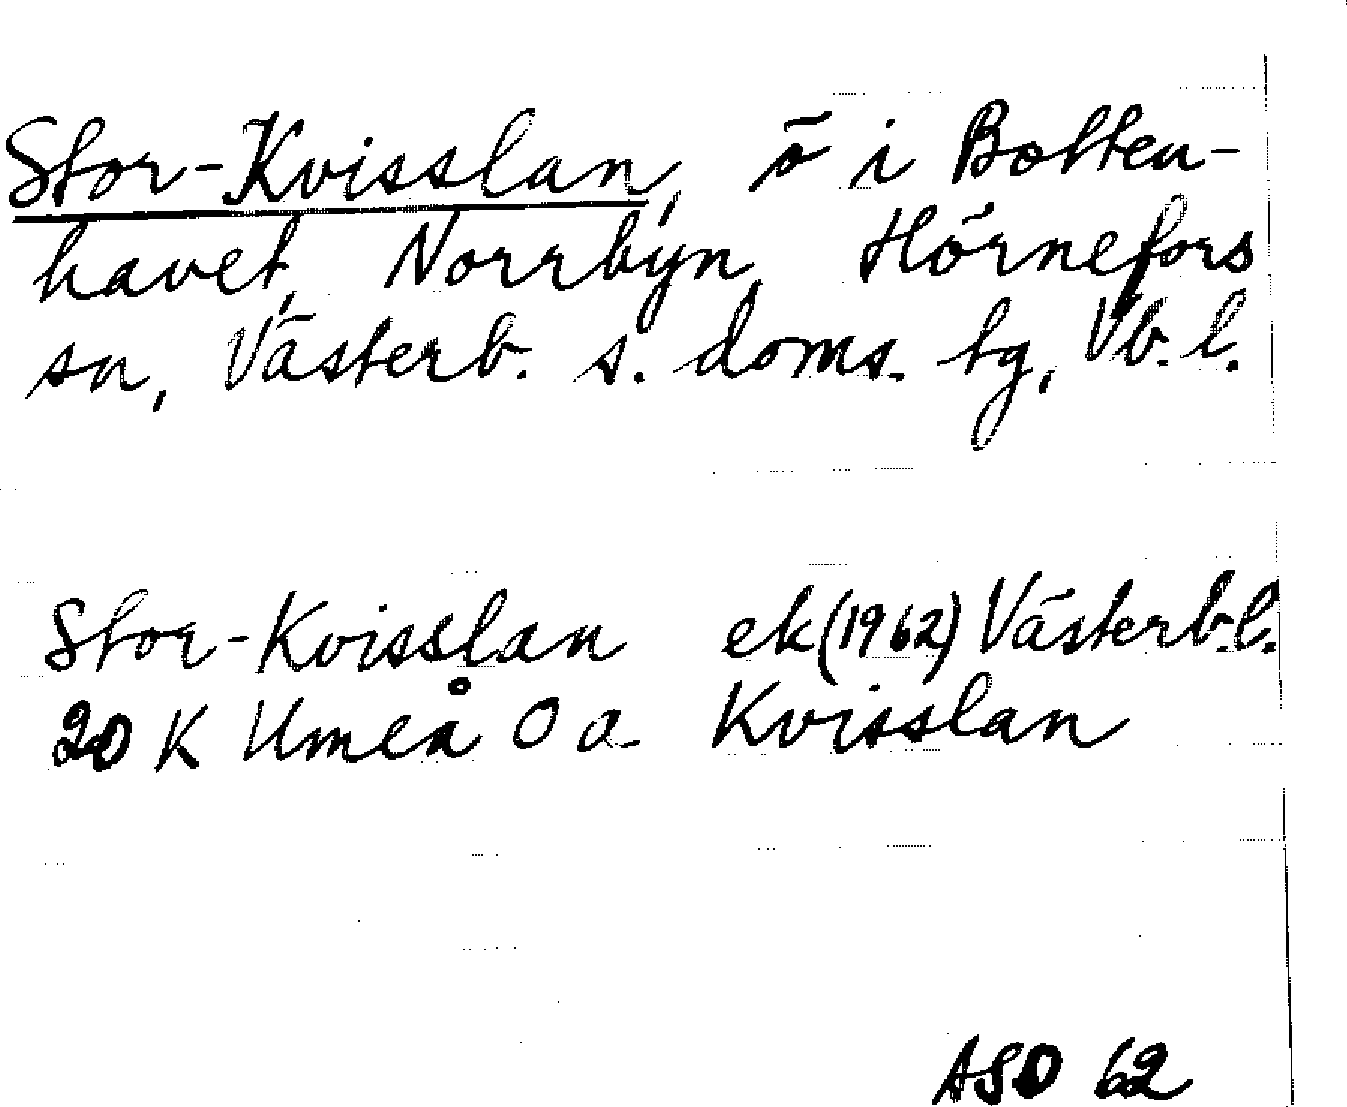 Stor-Kvisslan, ö i Botten-
havet, Norrbyn, Hörnefors
sn, Västerb. s. doms. tg, Vb. l.
Stor-Kvisslan ek (1962) Västerb. l.
20 K Umeå O a Kvisslan
ASD 62